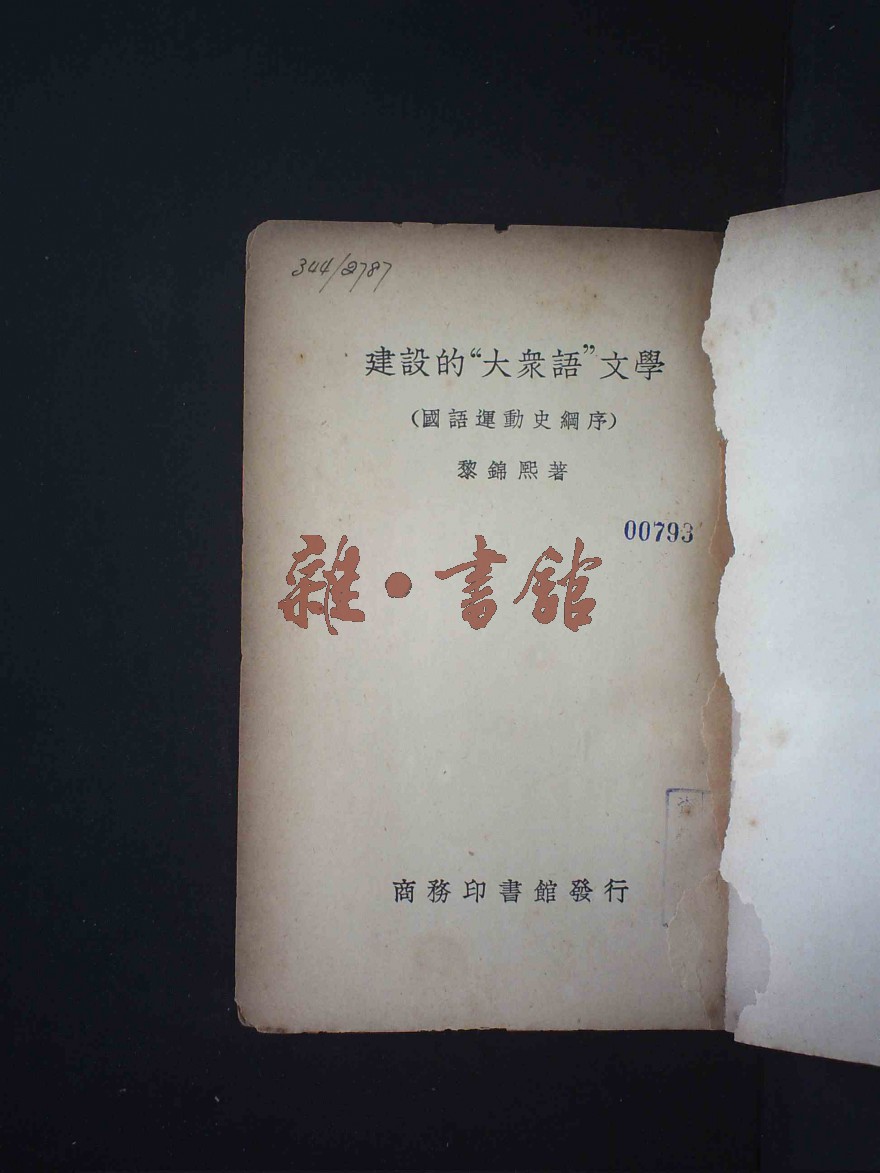 344/2787
建設的“大衆語”文學
(國語運動史綱序)
黎錦熙著
00793
雜·書館
商務印書館發行